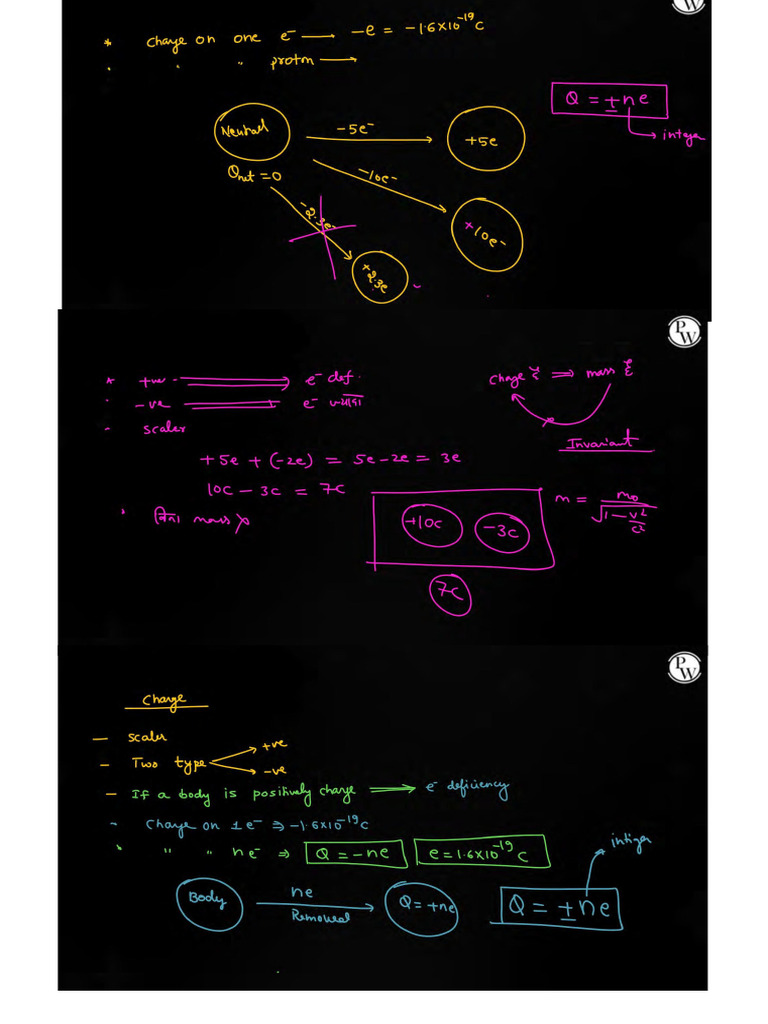 PW
* Charge on one e⁻ ⟶ -e = -1.6×10⁻¹⁹ C
" " " proton ⟶
Q = ±ne
→ integer
Neutral
-5e⁻
+5e
Qnet = 0
-10e⁻
+10e⁻
-2.3e⁻
+2.3e
PW
* +ve ⟹ e⁻ def.
· -ve ⟹ e⁻
- scaler
Charge ⟹ mass
Invariant
+5e + (-2e) = 5e - 2e = 3e
10C - 3C = 7C
· बिना mass ×
+10C
-3C
7C
m = m₀/√(1 - v²/c²)
PW
Charge
— Scaler
- Two type
+ve
-ve
- If a body is positively charge ⟹ e⁻ deficiency
- Charge on 1e⁻ ⇒ -1.6×10⁻¹⁹ C
" " " ne⁻ ⇒ Q = -ne e = 1.6×10⁻¹⁹ C
intiger
Body
ne
Removed
Q = +ne
Q = ±ne